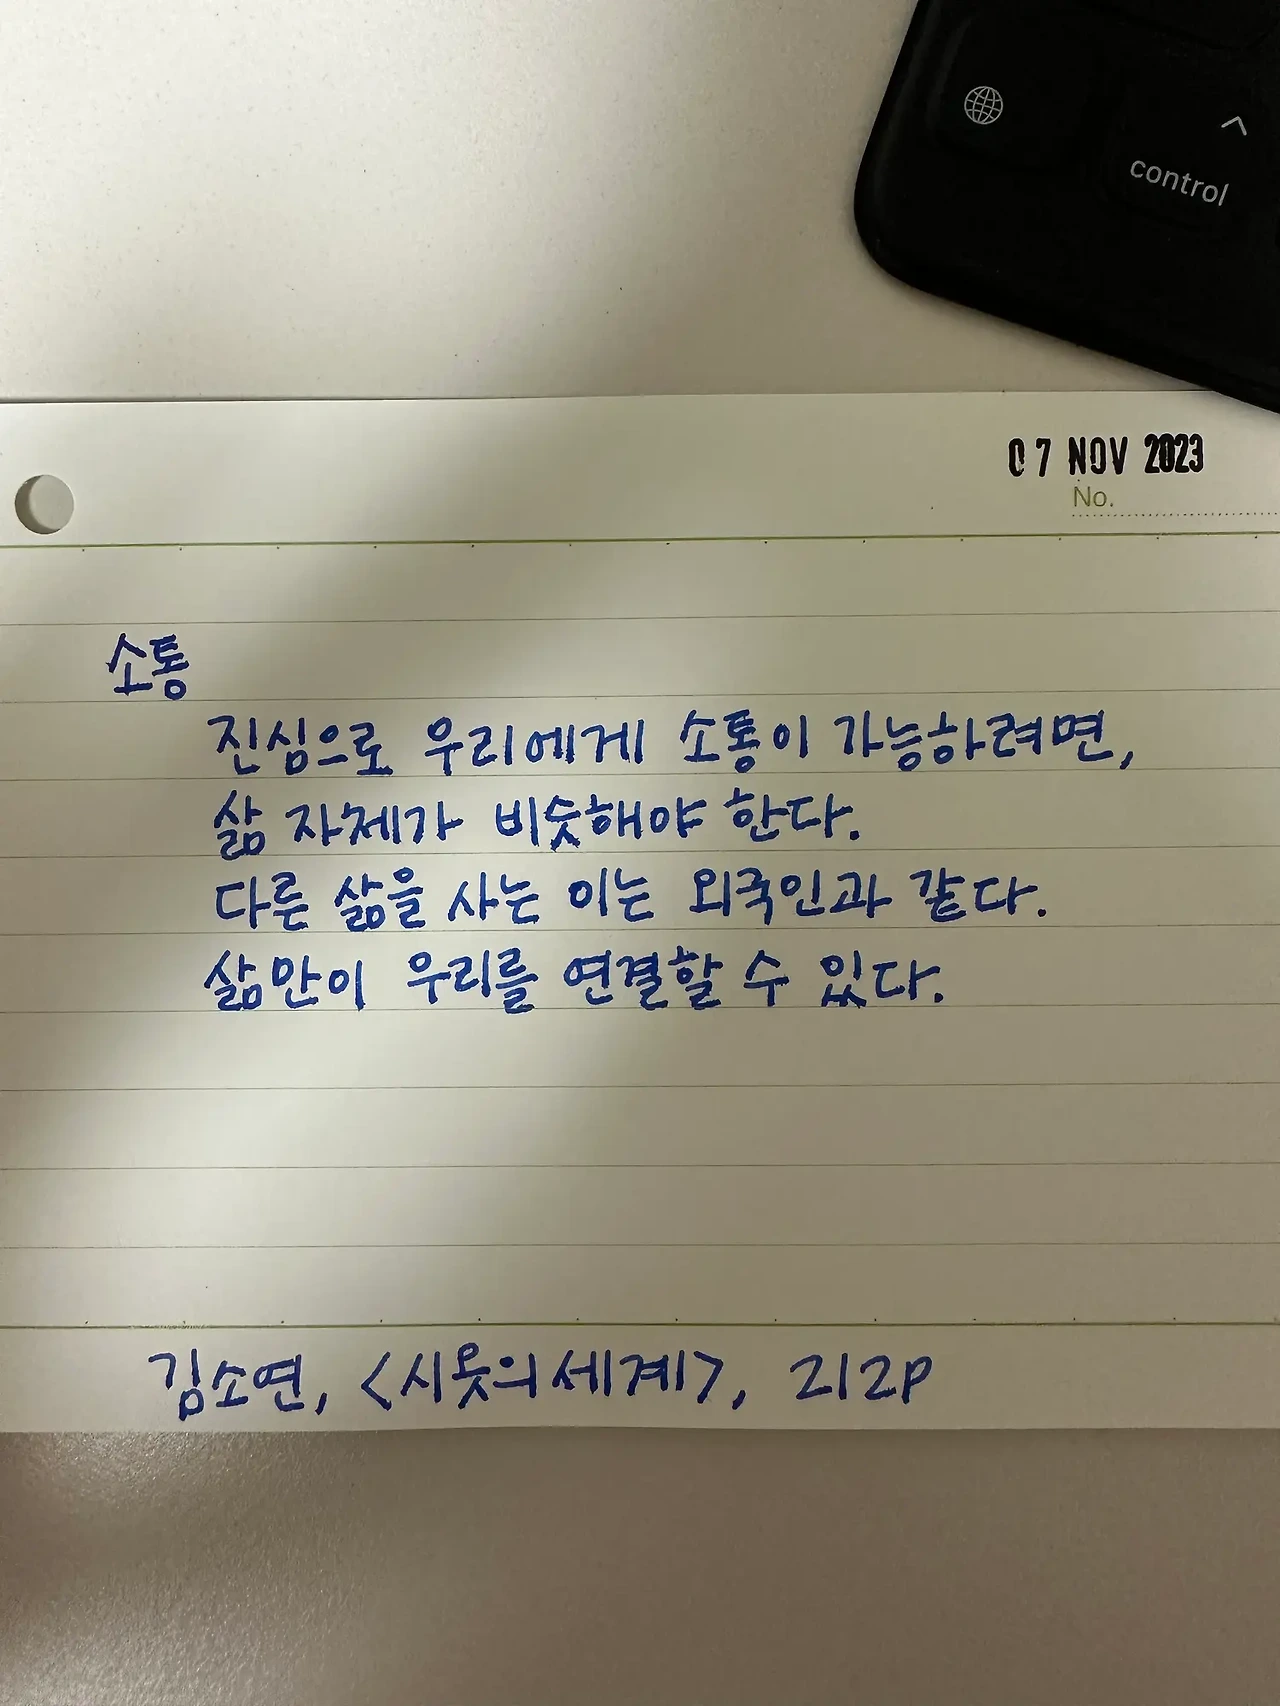 ^
control
07 NOV 2023
No.
소통
진심으로 우리에게 소통이 가능하려면,
삶 자체가 비슷해야 한다.
다른 삶을 사는 이는 외국인과 같다.
삶만이 우리를 연결할 수 있다.
김소연, <시옷의 세계>, 212p